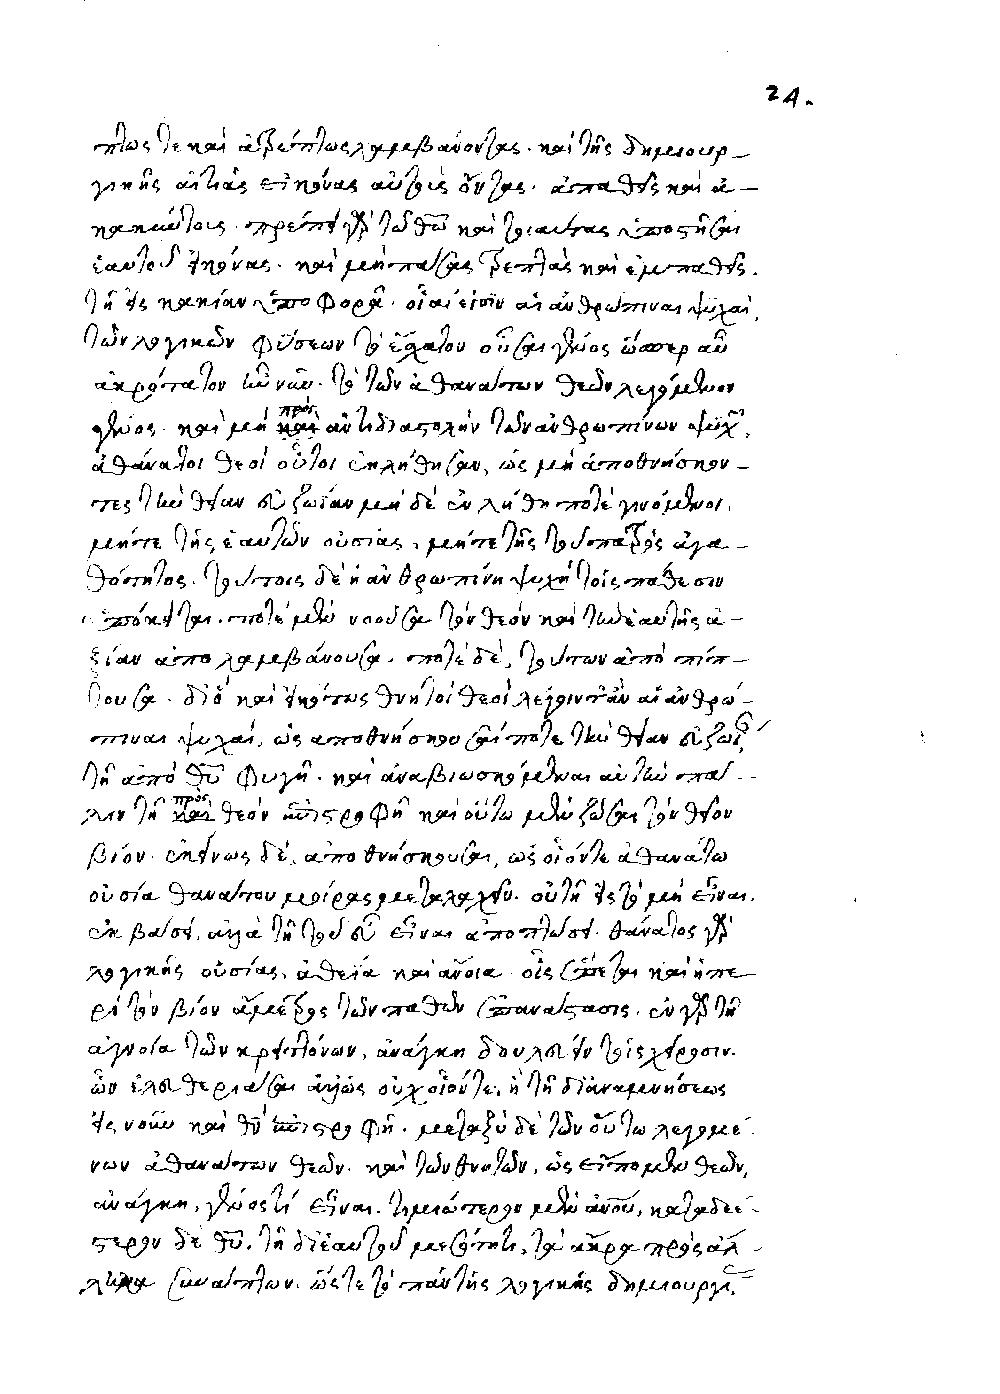 24.
πτως τε καὶ ἀτρέπτως λαμβάνοντας. καὶ τῆς δημιουρ-
γικῆς αἰτίας εἰκόνας αὐτοὺς ὄντας. ἀπαθεῖς καὶ ἀ-
κακώτους. πρέπει γὰρ τῷ θεῷ καὶ τοιαύτας ὑποστῆσαι
ἑαυτοῦ εἰκόνας. καὶ μὴ πάσας τρεπτὰς καὶ ἐμπαθεῖς.
τῇ εἰς κακίαν ὑποφορᾷ. οἷαί εἰσιν αἱ ἀνθρώπιναι ψυχαί,
τῶν λογικῶν φύσεων τὸ ἔσχατον οὖσαι γένος ὥσπερ αὖ
ἀκρότατον τὸ τῶν ἀθανάτων θεῶν λεγόμενον
γένος. καὶ μὴ πρὸς ἀντιδιαστολὴν τῶν ἀνθρωπίνων ψυχῶν,
ἀθάνατοι θεοὶ οὗτοι ἐκλήθησαν, ὡς μὴ ἀποθνήσκον-
τες τὴν θείαν εὐζωΐαν μὴ δὲ ἐν λήθῃ ποτὲ γινόμενοι.
μήτε τῆς ἑαυτῶν οὐσίας, μήτε τῆς τοῦ πατρὸς ἀγα-
θότητος. τούτοις δὲ ἡ ἀνθρωπίνη ψυχὴ τοῖς πάθεσιν
ὑπόκειται. ποτὲ μὲν νοοῦσα τὸν θεὸν καὶ τὴν ἑαυτῆς ἀ-
ξίαν ἀπολαμβάνουσα. ποτὲ δὲ, τούτων ἀποπίπ-
τουσα. διὸ καὶ εἰκότως θνητοὶ θεοὶ λέγοιντ' ἂν αἱ ἀνθρώ-
πιναι ψυχαί, ὡς ἀποθνήσκουσαί ποτε τὴν θείαν εὐζωΐαν
τῇ ἀπὸ θεοῦ φυγῇ. καὶ ἀναβιωσκόμεναι αὐτὴν πά-
λιν τῇ πρὸς θεὸν ἐπιστροφῇ καὶ οὕτω μὲν ζῶσαι τὸν θεῖον
βίον. ἐκείνως δὲ, ἀποθνήσκουσαι, ὡς οἷόν τε ἀθανάτῳ
οὐσίᾳ θανάτου μοίρας μεταλαχεῖν. οὐ τῇ εἰς τὸ μὴ εἶναι.
ἐκβάσει, ἀλλὰ τῇ τοῦ εὖ εἶναι ἀποπτώσει. θάνατος γὰρ
λογικῆς οὐσίας, ἀθεΐα καὶ ἄνοια οἷς ἕπεται καὶ ἡ πε-
ρὶ τὸν βίον ἄμετρος τῶν παθῶν ἐπανάστασις. ἐν γὰρ τῇ
ἀγνοίᾳ τῶν κρειττόνων, ἀνάγκη δουλεύειν τοῖς χείροσιν.
ὧν ἐλευθερωθῆσαι ἄλλως οὐχ οἷόν τε, ἢ τῇ δι' ἀναμνήσεως
εἰς νοῦν καὶ θεὸν ἐπιστροφῇ. μεταξὺ δὲ τῶν οὕτω λεγομέ-
νων ἀθανάτων θεῶν. καὶ τῶν θνητῶν, ὡς εἴπομεν θεῶν,
ἀνάγκη, γένος τί εἶναι. τιμιώτερον μὲν ἀνθρώπου, καταδεέ-
στερον δὲ θεοῦ. τῇ δι' ἑαυτοῦ μεσότητι, τὰ ἄκρα πρὸς ἄλ-
ληλα συνάπτων. ὥστε τὸ πᾶν τῆς λογικῆς δημιουργίας